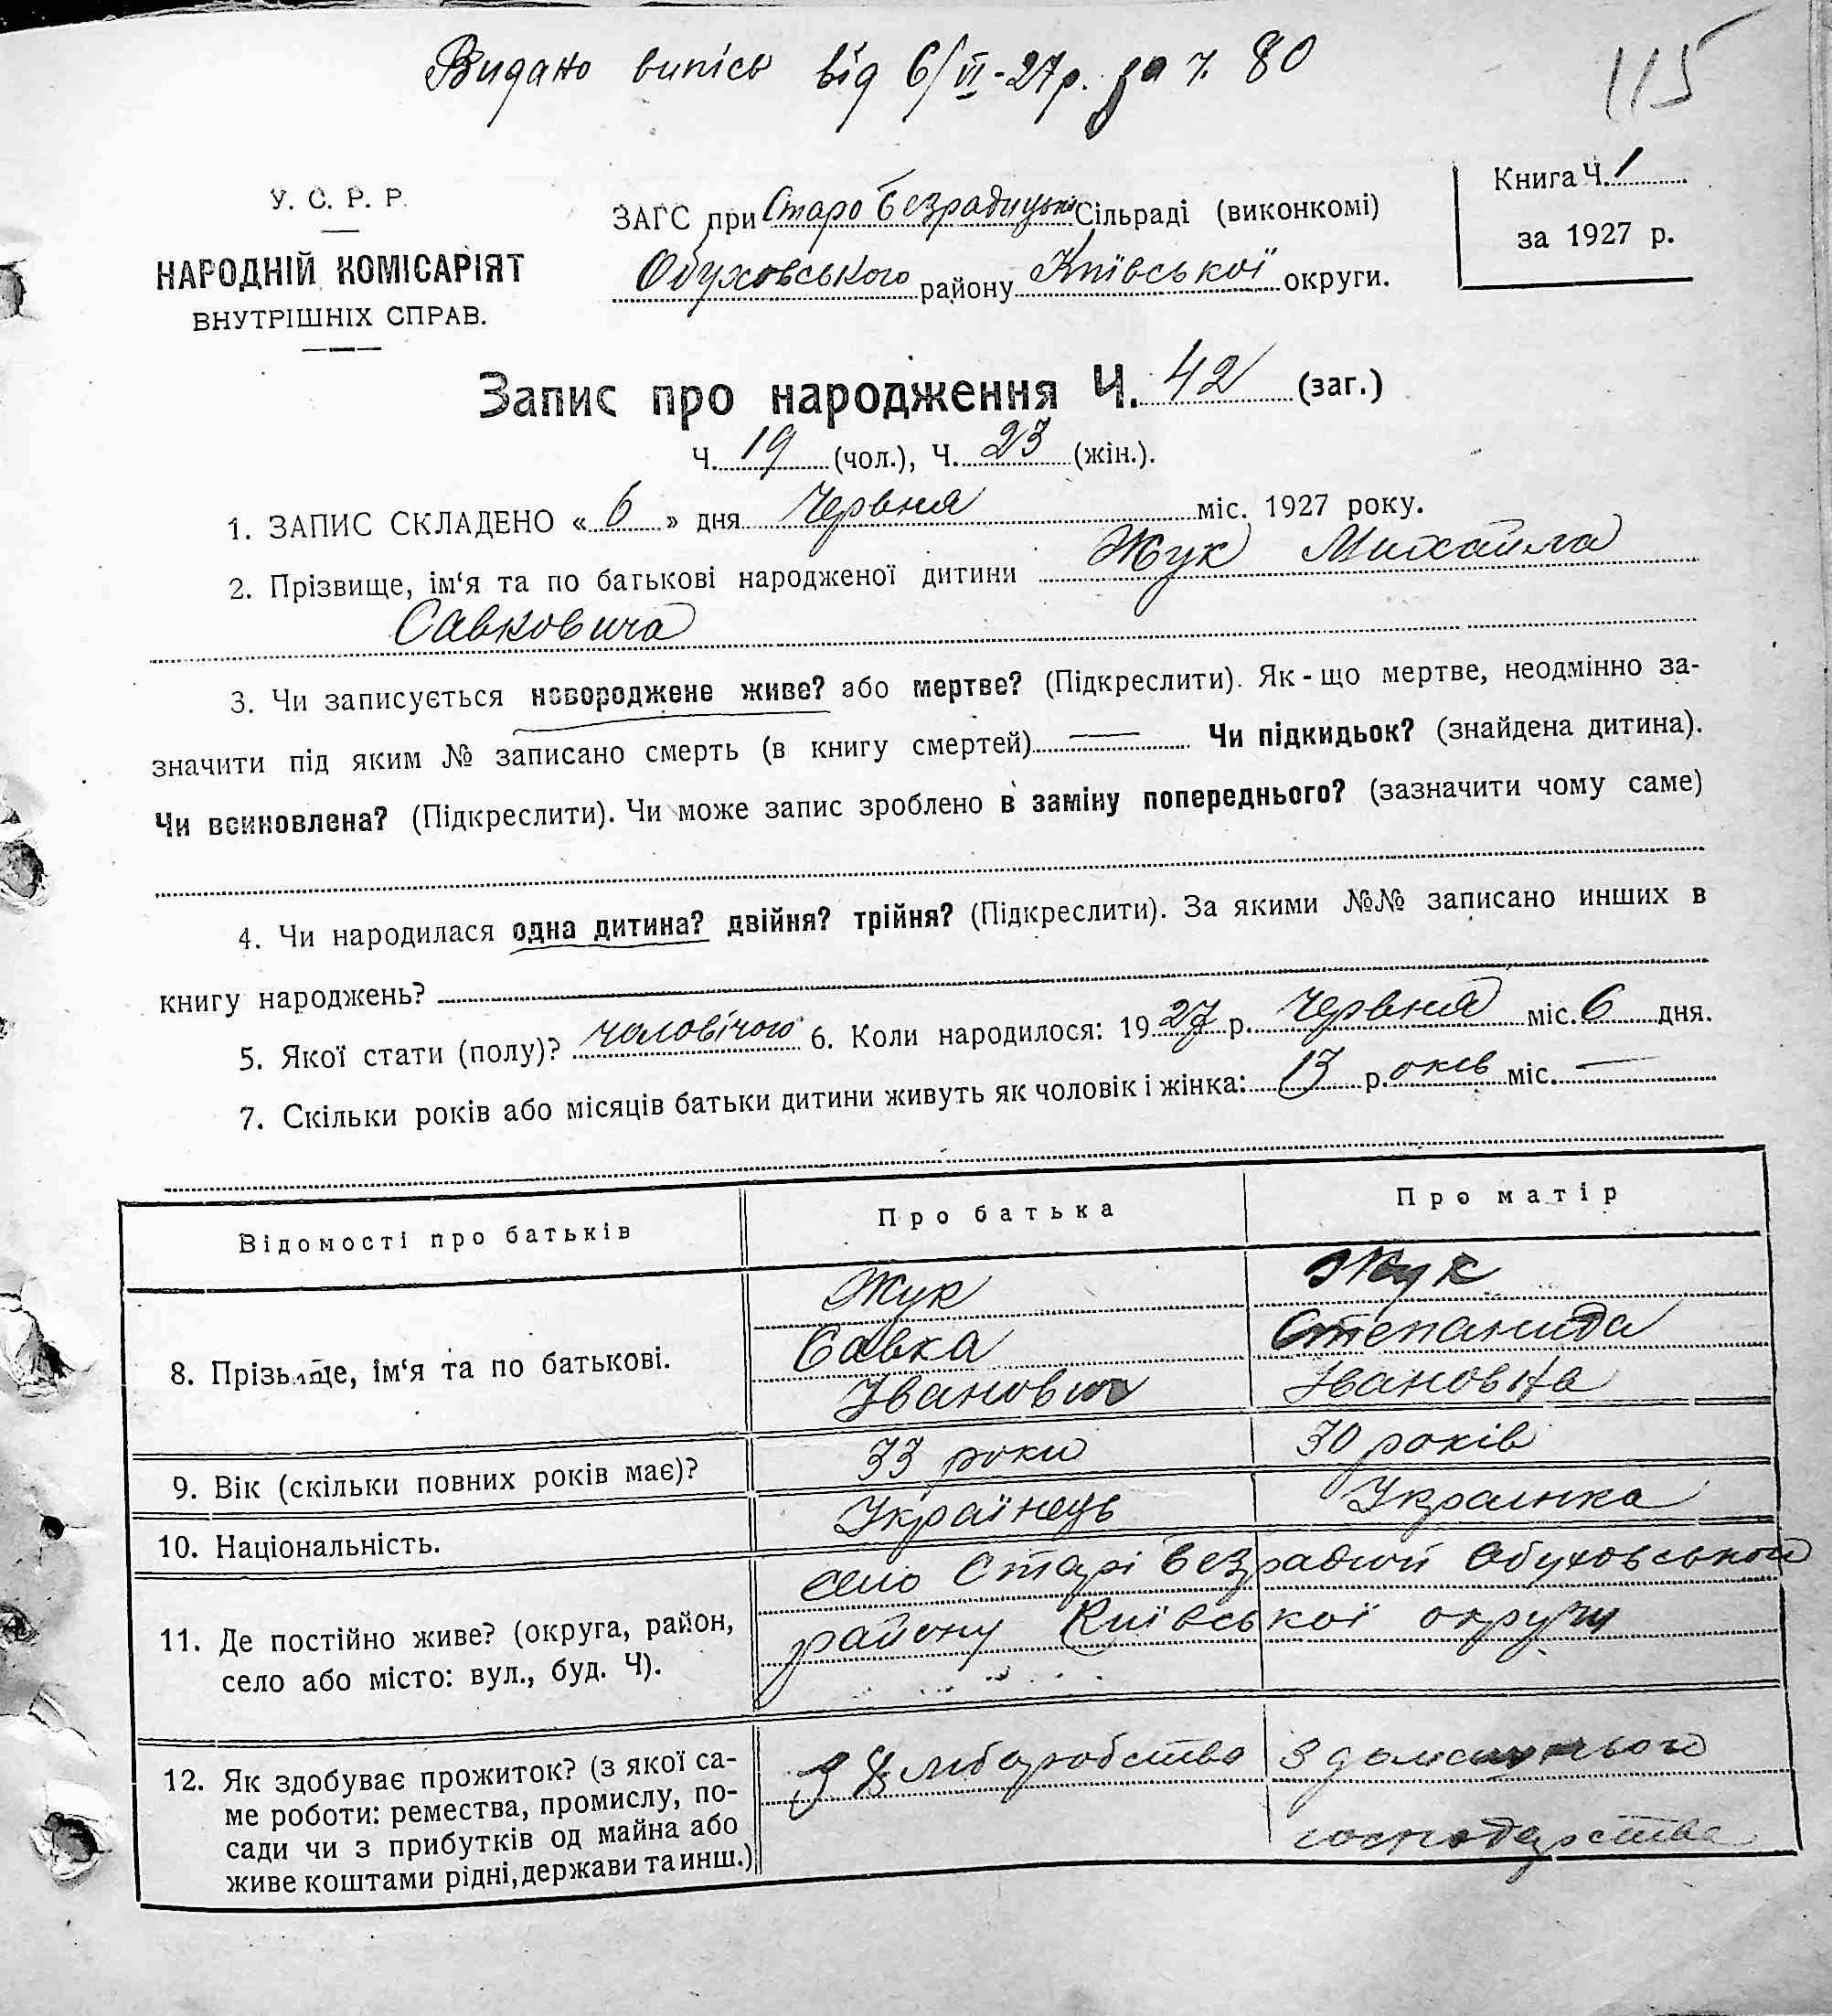 Видано випісь від 6/VI-27р. за ч. 80
115
У. С. Р. Р.
НАРОДНІЙ КОМІСАРІЯТ
ВНУТРІШНІХ СПРАВ.
ЗАГС при Старо Безрадицькій Сільраді (виконкомі)
Обуховського району Київської округи.
Книга Ч. 1
за 1927 р.
Запис про народження Ч. 42 (заг.)
Ч. 19 (чол.), Ч. 23 (жін.).
1. ЗАПИС СКЛАДЕНО « 6 » дня Червня міс. 1927 року.
2. Прізвище, ім‘я та по батькові народженої дитини Жук Михайла
Савковича
3. Чи записується новороджене живе? або мертве? (Підкреслити). Як-що мертве, неодмінно за-
значити під яким № записано смерть (в книгу смертей) — Чи підкидьок? (знайдена дитина).
Чи всиновлена? (Підкреслити). Чи може запис зроблено в заміну попереднього? (зазначити чому саме)
4. Чи народилася одна дитина? двійня? трійня? (Підкреслити). За якими №№ записано инших в
книгу народжень?
5. Якої стати (полу)? чоловічого 6. Коли народилося: 1927 р. Червня міс. 6 дня.
7. Скільки років або місяців батьки дитини живуть як чоловік і жінка: 13 р.оків міс. —
Відомості про батьків Про батька Про матір
8. Прізвище, ім‘я та по батькові.
Жук Жук
Савка Степанида
Іванович Івановна
9. Вік (скільки повних років має)? 33 роки 30 років
10. Національність. Українець Украинка
11. Де постійно живе? (округа, район,
село або місто: вул., буд. Ч).
село Старі Безрадичі Обуховського
району Київської округи
12. Як здобуває прожиток? (з якої са-
ме роботи: ремества, промислу, по-
сади чи з прибутків од майна або
живе коштами рідні, держави та инш.)
з Хліборобства з домашнього
господарства